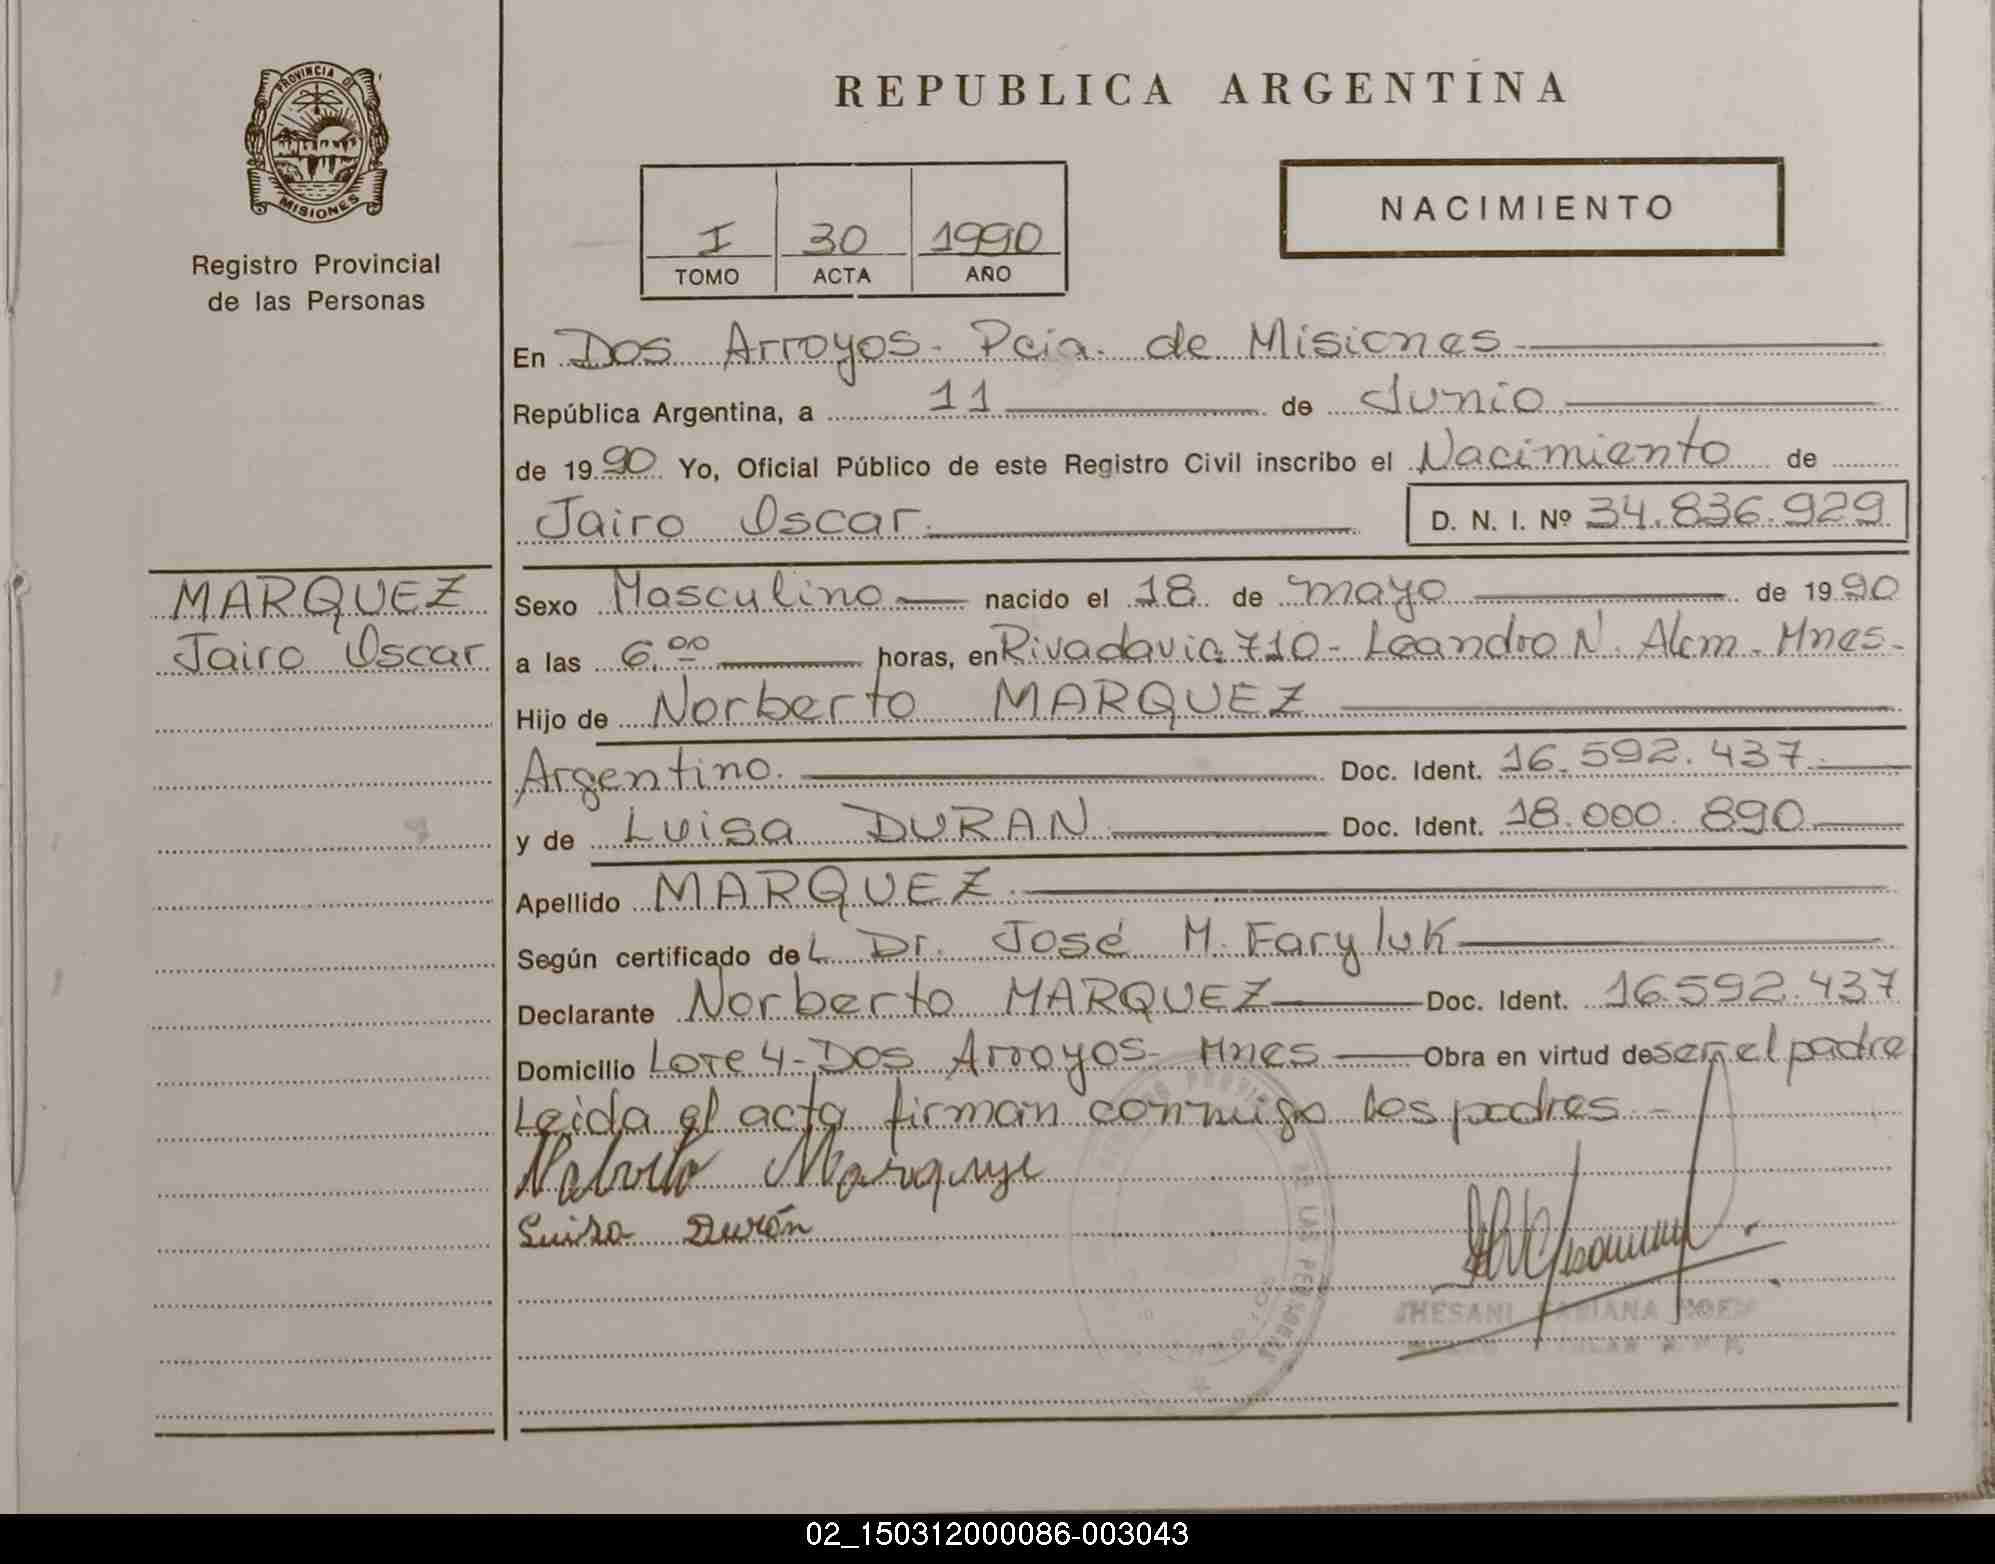 PROVINCIA DE
MISIONES
Registro Provincial
de las Personas
MARQUEZ
Jairo Oscar
REPUBLICA ARGENTINA
I 30 1990
TOMO ACTA AÑO
NACIMIENTO
En Dos Arroyos - Pcia. de Misiones
República Argentina, a 11 de Junio
de 1990 Yo, Oficial Público de este Registro Civil inscribo el Nacimiento de
Jairo Oscar. D. N. I. Nº 34.836.929
Sexo Masculino nacido el 18 de mayo de 1990
a las 6.00 horas, en Rivadavia 710 - Leandro N. Alem - Mnes.
Hijo de Norberto MARQUEZ
Argentino. Doc. Ident. 16.592.437
y de Luisa DURAN Doc. Ident. 18.000.890
Apellido MARQUEZ
Según certificado del Dr. José M. Faryluk
Declarante Norberto MARQUEZ Doc. Ident. 16.592.437
Domicilio Lote 4 - Dos Arroyos - Mnes Obra en virtud de ser el padre
Leida el acta firman conmigo los padres -
Norberto Marquez
Luisa Durán
FABIANA
02_150312000086-003043